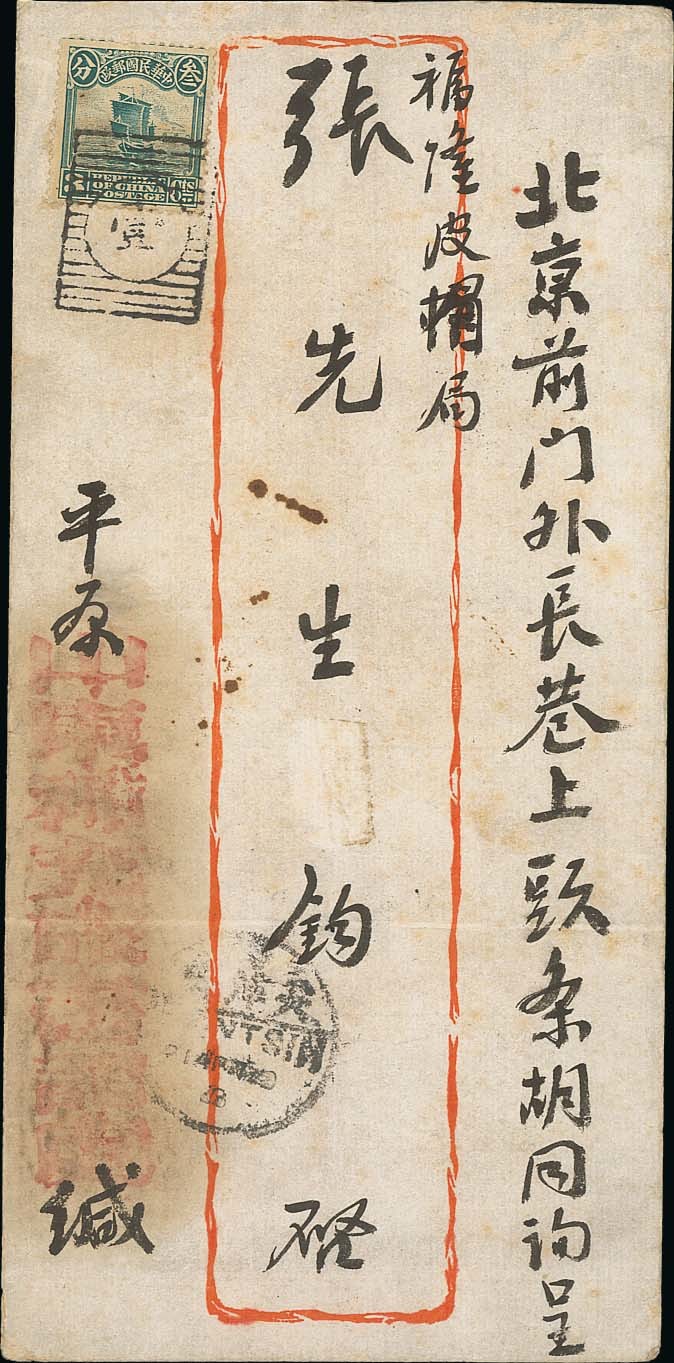 北京前门外長巷上頭条胡同询呈
福隆皮帽局
張先生鈞啓
平原
缄
叁 中華民國郵政 分
3 REPUBLIC OF CHINA POSTAGE 3 Cts
TIENTSIN